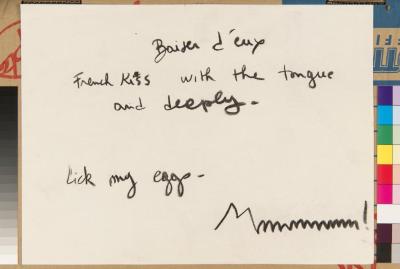 Baiser d'eux
French Kiss with the tongue
and deeply.
Lick my eggs -
Mmmmmmm!